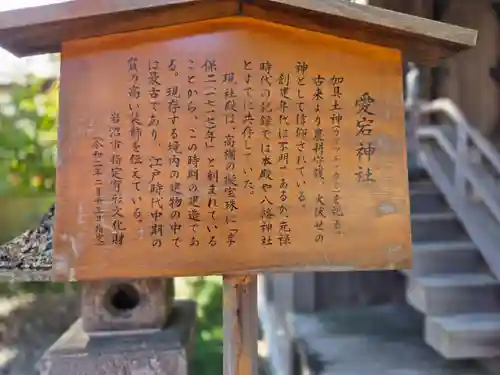 愛宕神社
加具土神（カグツチノカミ）を祀る。
古来より農耕守護、火伏せの
神として信仰されている。
創建年代は不明であるが元禄
時代の記録では本殿や八幡神社
とともに共存していた。
現社殿は、高欄の擬宝珠に「享
保二（一七一七）年」と刻まれている
ことから、この時期の建造であ
る。現存する境内の建物の中で
は最古であり、江戸時代中期の
質の高い装飾を伝えている。
岩沼市指定有形文化財
令和二年二月廿三日指定